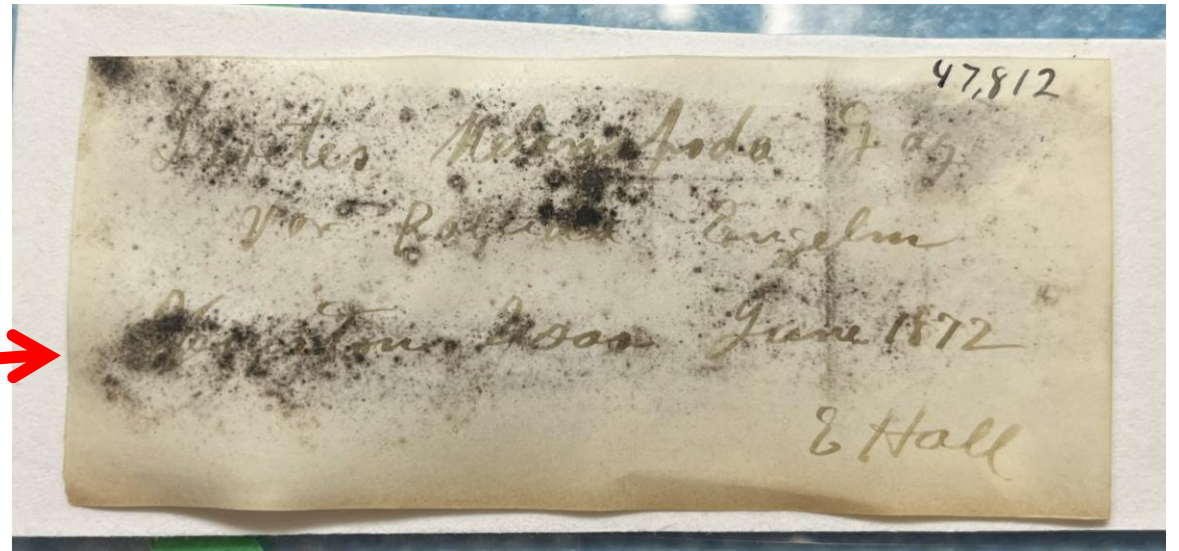 47,812
Isoetes Melanopoda Gay
Var Pallida Engelm
Houston Texas June 1872
E Hall